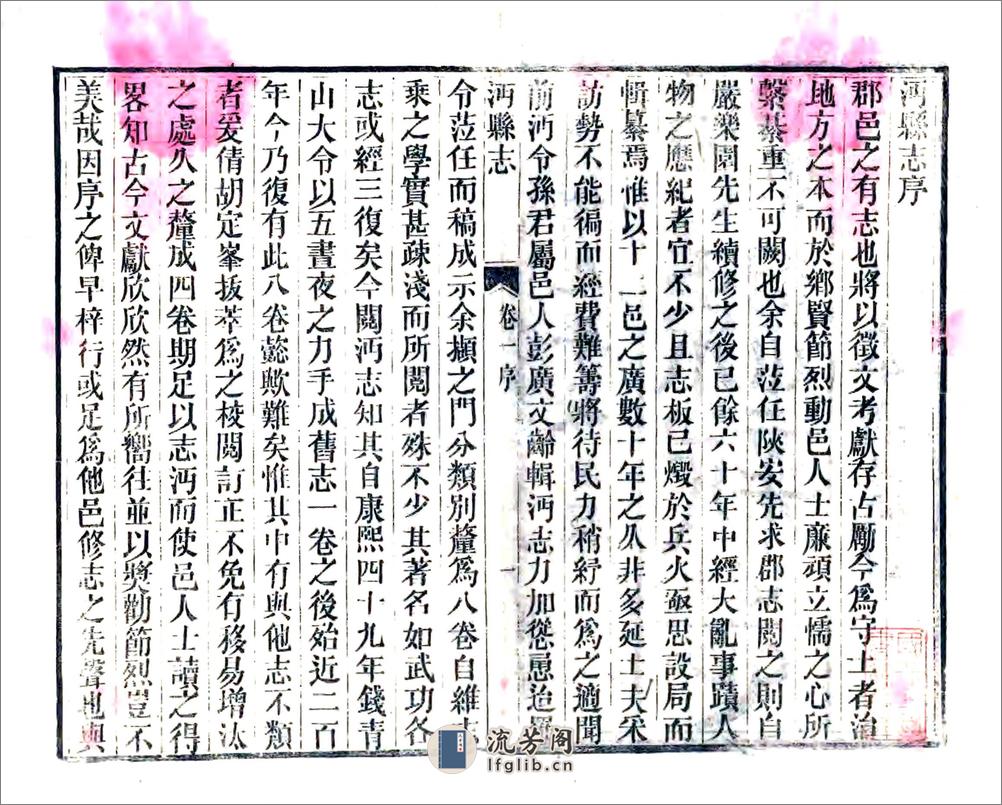 沔縣志序
郡邑之有志也將以徵文考獻存占勵今爲守土者治
地方之本而於鄉賢節烈動邑人士廉頑立懦之心所
繫綦重不可闕也余自蒞任陝安先求郡志閱之則自
嚴樂園先生續修之後已餘六十年中經大亂事蹟人
物之應紀者宜不少且志板已燬於兵火亟思設局而
輯纂焉惟以十一邑之廣數十年之久非多延士夫采
訪勢不能徧而經費難籌將待民力稍紓而爲之適聞
前沔令孫君屬邑人彭廣文齡輯沔志力加慫恿迨羅
沔縣志 卷一 序 一
令蒞任而稿成示余擷之門分類別釐爲八卷自維
乘之學實甚疎淺而所閱者殊不少其著名如武功各
志或經三復矣今閱沔志知其自康熙四十九年錢青
山大令以五晝夜之力手成舊志一卷之後殆近二百
年今乃復有此八卷懿歟難矣惟其中有與他志不類
者爰倩胡定峯拔萃爲之校閱訂正不免有移易增汰
之處久之釐成四卷期足以志沔而使邑人士讀之得
畧知古今文獻欣欣然有所嚮往並以獎勸節烈豈不
美哉因序之俾早梓行或足爲他邑修志之先聲也與
流芳阁
lfglib.cn